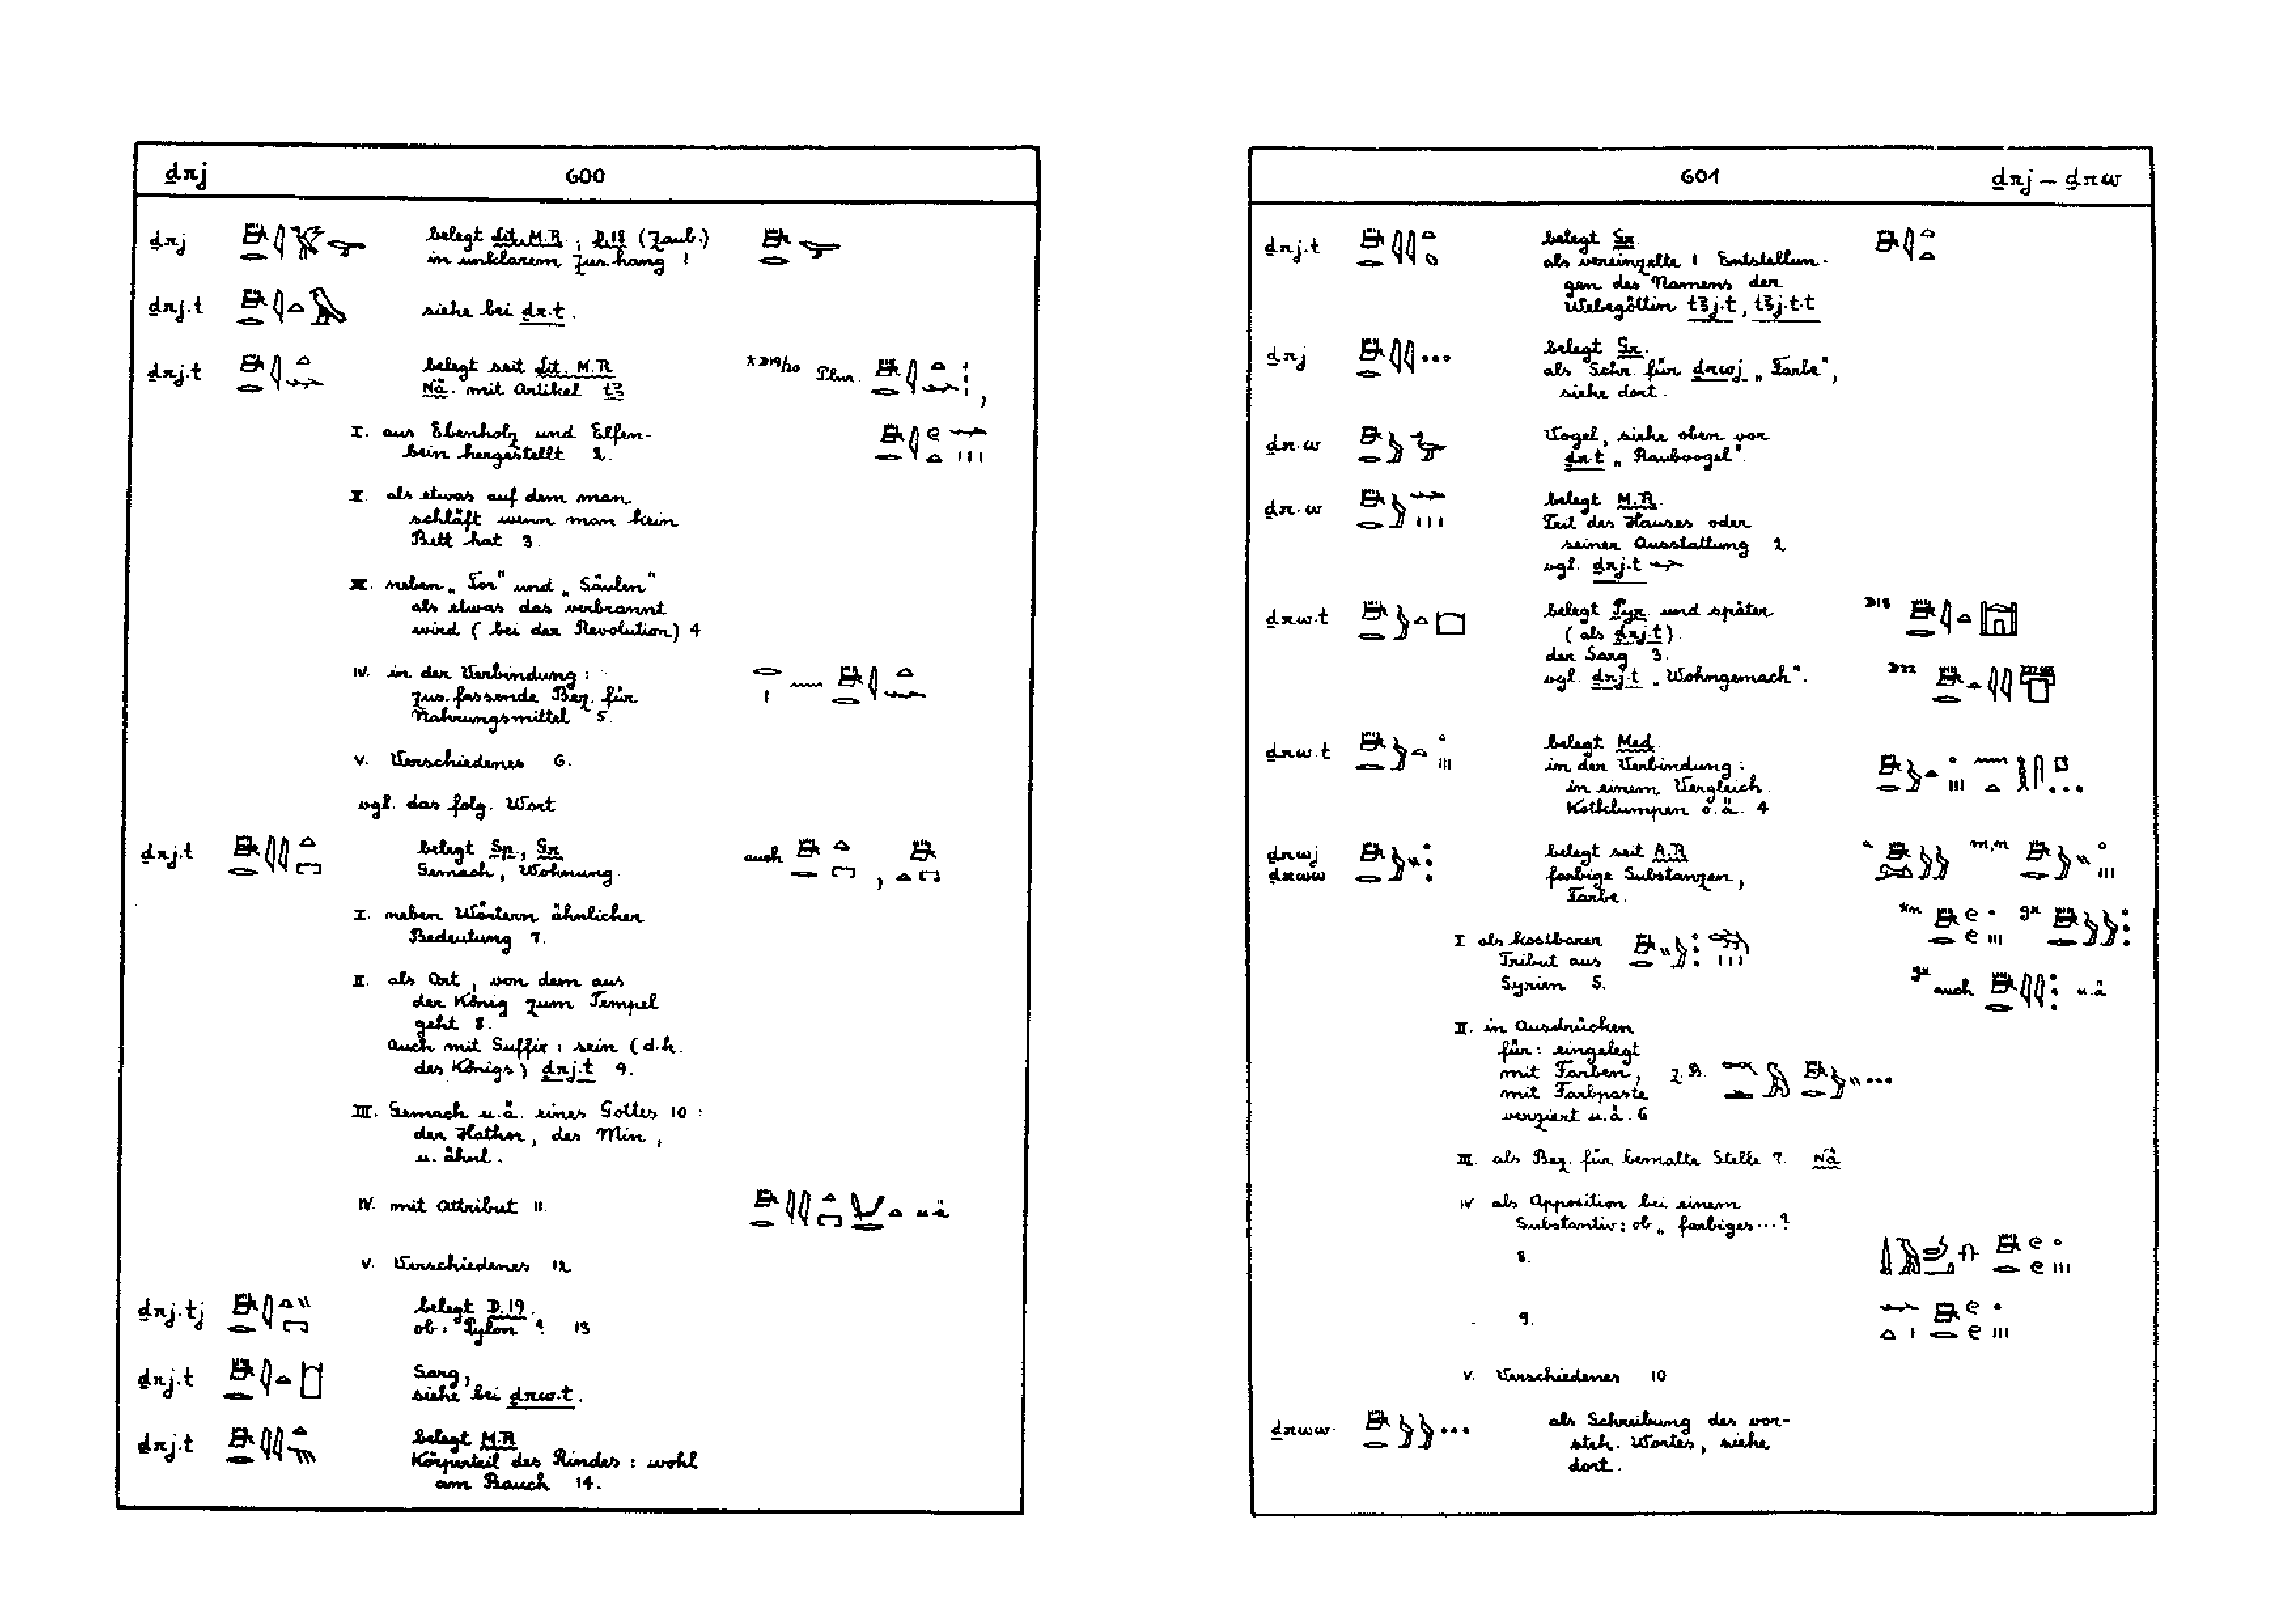 ḏrj 600
ḏrj belegt Lit. M.R., D.18 (Zaub.)
in unklarem Zus.hang 1
ḏrj.t siehe bei ḏr.t.
ḏrj.t belegt seit Lit. M.R. Plur.
Nä. mit Artikel tꜣ
I. aus Ebenholz und Elfen-
bein hergestellt 2.
II. als etwas auf dem man
schläft wenn man kein
Bett hat 3.
III. neben „Tor" und „Säulen"
als etwas das verbrannt
wird (bei der Revolution) 4
IV. in der Verbindung:
zus.fassende Bez. für
Nahrungsmittel 5.
V. Verschiedenes 6.
vgl. das folg. Wort
ḏrj.t belegt Sp., Gr. auch
Gemach, Wohnung.
I. neben Wörtern ähnlicher
Bedeutung 7.
II. als Ort, von dem aus
der König zum Tempel
geht 8.
Auch mit Suffix: sein (d.h.
des Königs) ḏrj.t 9.
III. Gemach u.ä. eines Gottes 10:
der Hathor, des Min,
u. ähnl.
IV. mit Attribut 11. u.ä
V. Verschiedenes 12
ḏrj.tj belegt D.19.
ob: Pylon? 13
ḏrj.t Sarg,
siehe bei ḏrw.t.
ḏrj.t belegt M.R
Körperteil des Rindes: wohl
am Bauch 14.
601 ḏrj – ḏrw
ḏrj.t belegt Gr.
als vereinzelte 1 Entstellun-
gen des Namens der
Webegöttin tꜣj.t, tꜣj.t.t
ḏrj belegt Gr.
als Schr. für ḏrwj „Farbe",
siehe dort.
ḏr.w Vogel, siehe oben vor
ḏr.t „Raubvogel".
ḏr.w belegt M.R.
Teil des Hauses oder
seiner Ausstattung 2
vgl. ḏrj.t
ḏrw.t belegt Pyr. und später D18
(als ḏrj.t).
der Sarg 3.
vgl. ḏrj.t „Wohngemach". D22
ḏrw.t belegt Med.
in der Verbindung:
in einem Vergleich
Kotklumpen o.ä. 4
ḏrwj belegt seit A.R a m,n
ḏrww farbige Substanzen,
Farbe.
I als kostbarer
Tribut aus
Syrien 5. gr auch u.ä
II. in Ausdrücken
für: eingelegt
mit Farben, z.B.
mit Farbpaste
verziert u.ä. 6
III. als Bez. für bemalte Stelle 7. Nä
IV als Apposition bei einem
Substantiv: ob „farbiges...?
8.
9.
V. Verschiedenes 10
ḏrww. als Schreibung des vor-
steh. Wortes, siehe
dort.